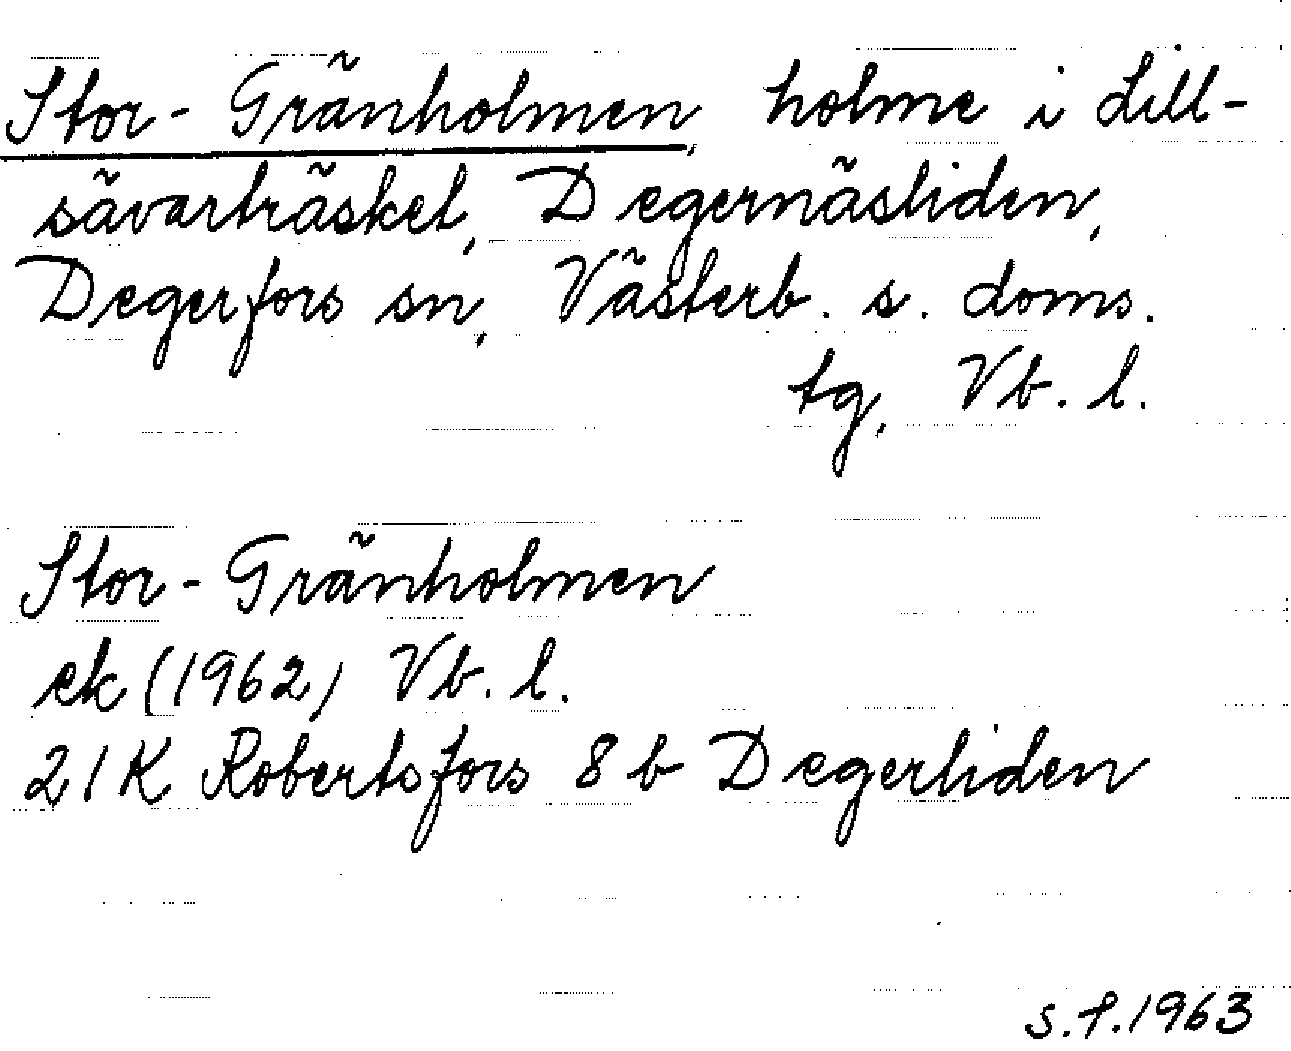 Stor-Gränholmen, holme i Lill-
sävarträsket, Degernäsliden,
Degerfors sn, Västerb. s. doms.
tg, Vb. l.
Stor-Gränholmen
ek (1962) Vb. l.
21K Robertsfors 8 b Degerliden
s.f.1963